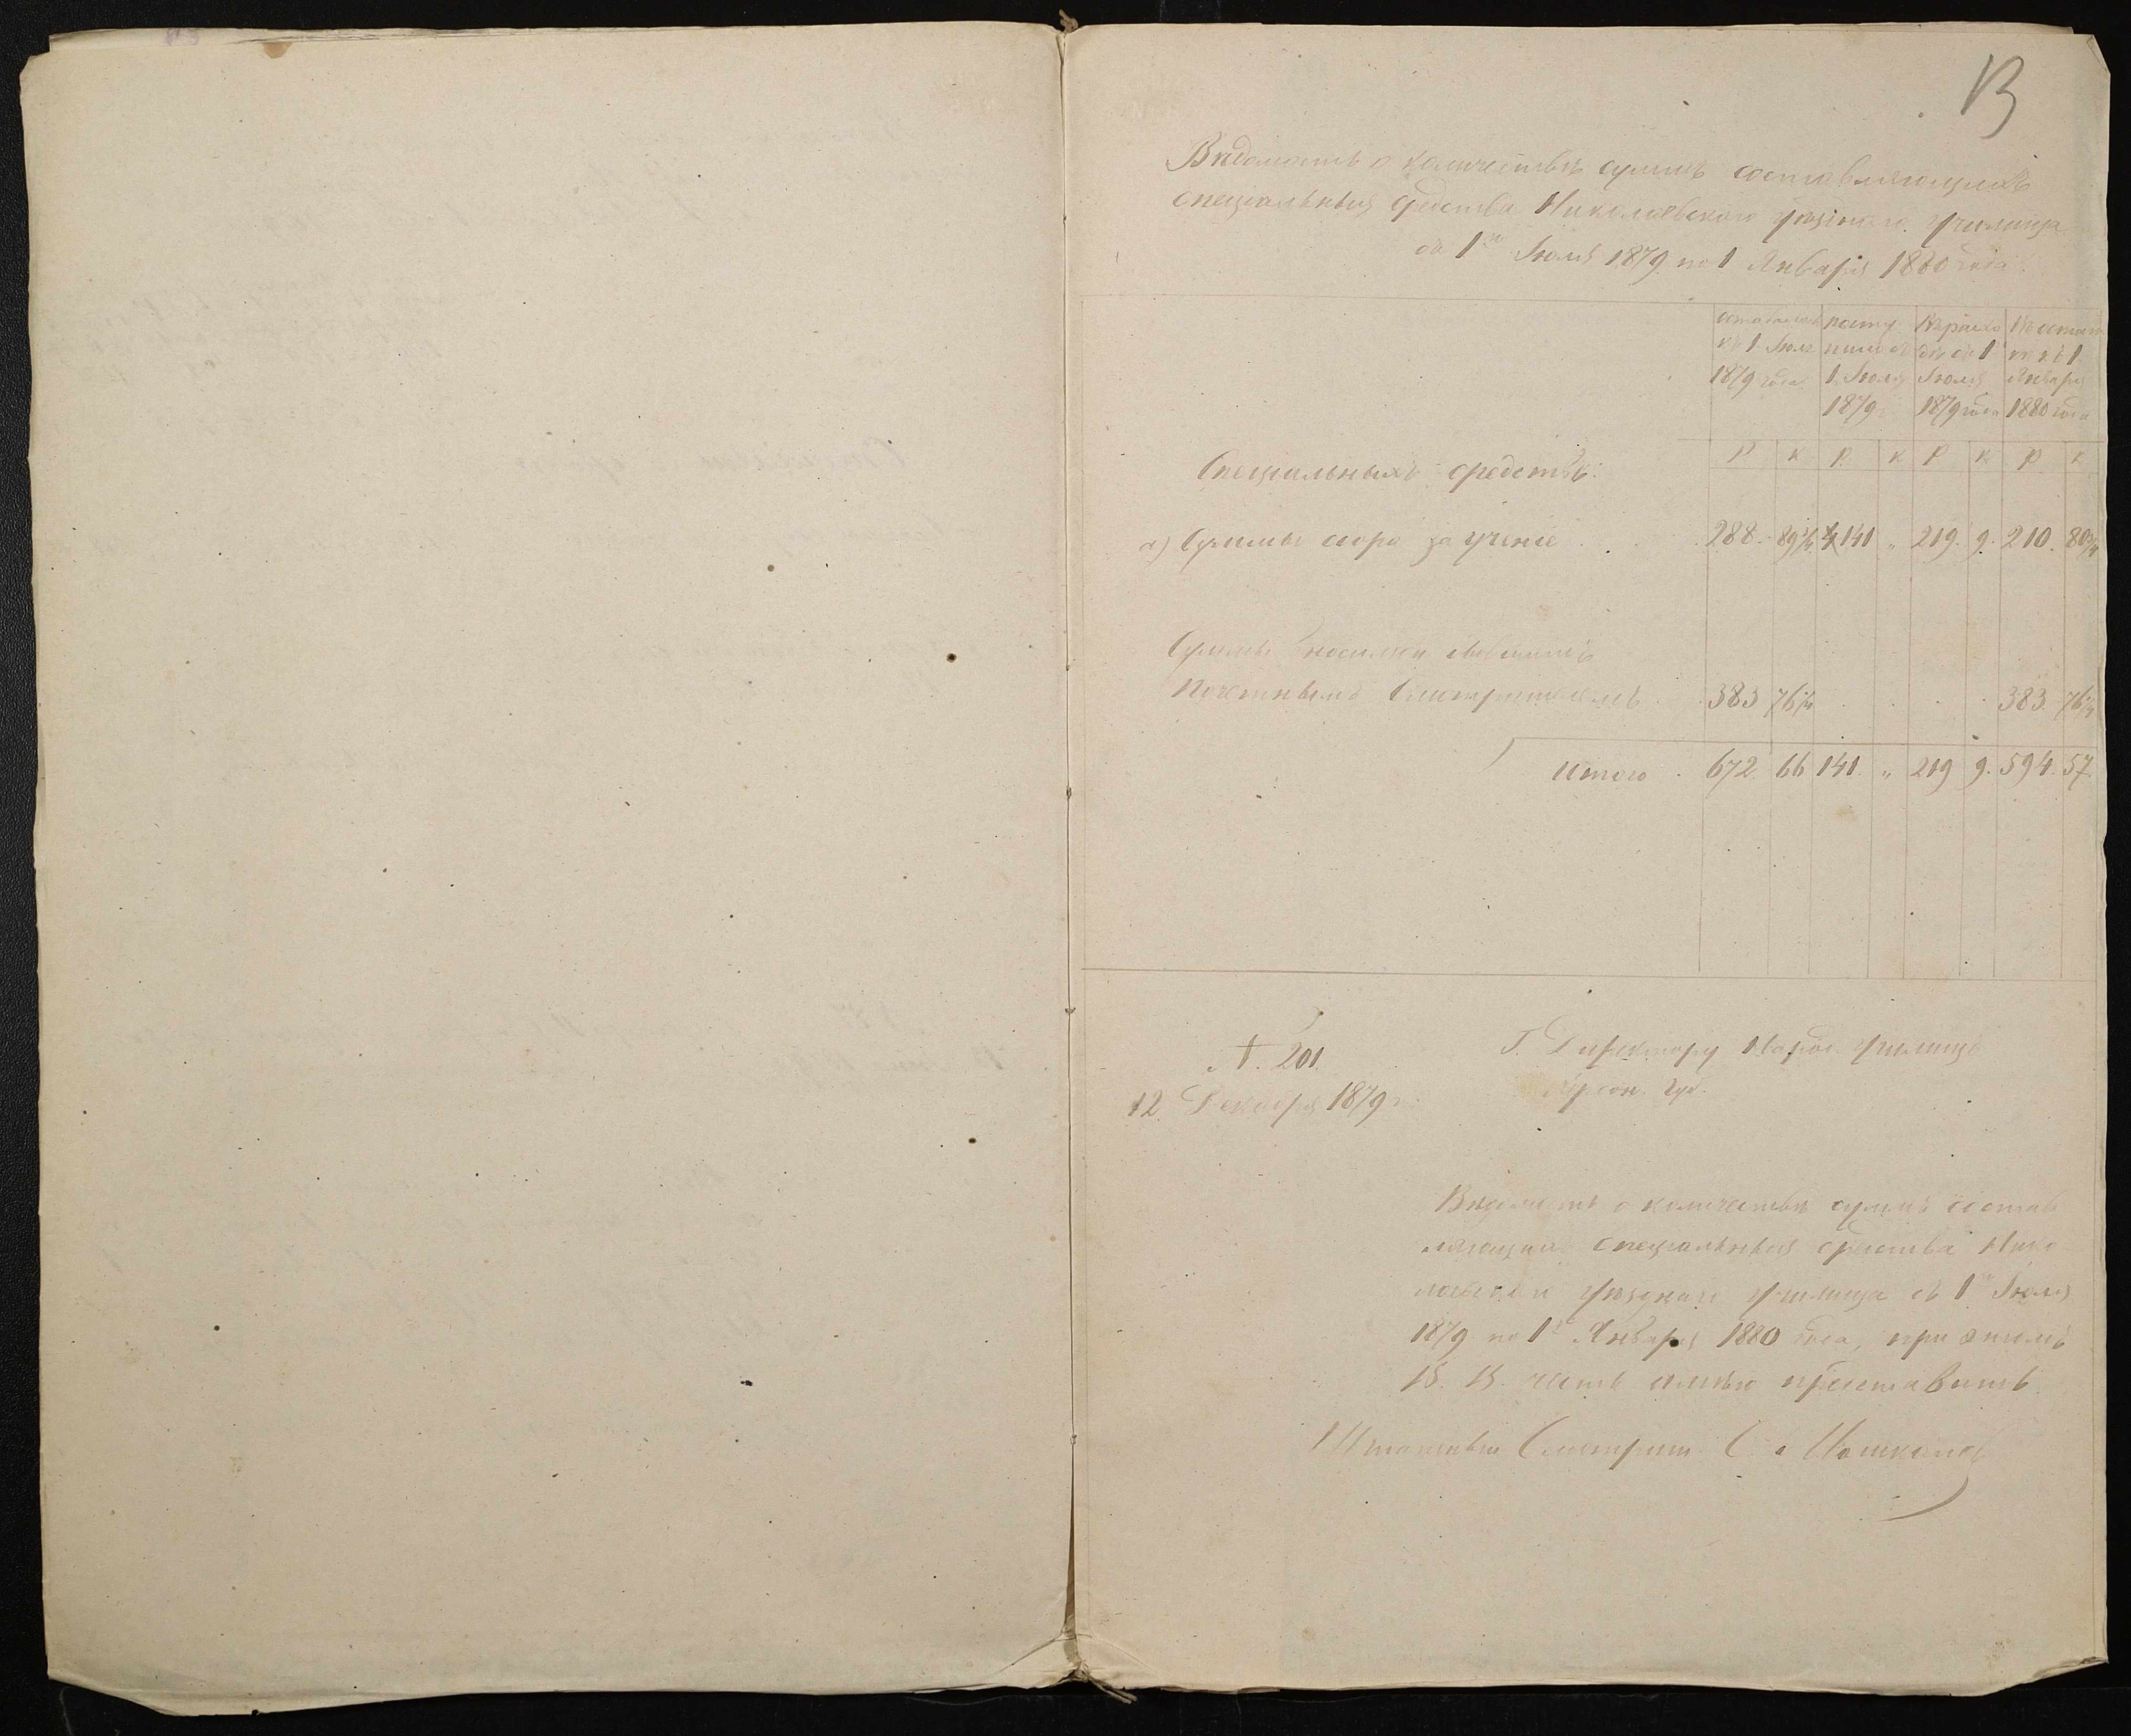 13
Вѣдомость о количествѣ суммъ составляющихъ
спеціальныя средства Николаевскаго уѣзднаго училища
съ 1го Іюля 1879 по 1 Января 1880 года.
оставалось посту Въ расхо Въ остат
къ 1 Іюля пило съ дѣ съ 1 кѣ къ 1
1879 года 1 Іюля Іюля Января
1879 г 1879 года 1880 года
Р К Р К Р К Р К
Спеціальныхъ средствъ:
а) Суммы сбора за ученіе 288. 89 3/4 141 „ 219. 9. 210. 80 3/4
Суммы
Почетнымъ Смотрителемъ 383 76 1/4 383. 76 1/4
Итого 672. 66 141 „ 219 9. 594. 57.
N. 201.
12 Декабря 1879 г.
Г. Директору Народ. Училищъ
Херсон. Губ.
Вѣдомость о количествѣ суммъ состав
ляющихъ спеціальныя средства Нико
лаевскаго уѣзднаго училища съ 1 Іюля
1879 по 1е Января 1880 года, при этомъ
В. В. честь имѣю представить.
Штатный Смотрит.